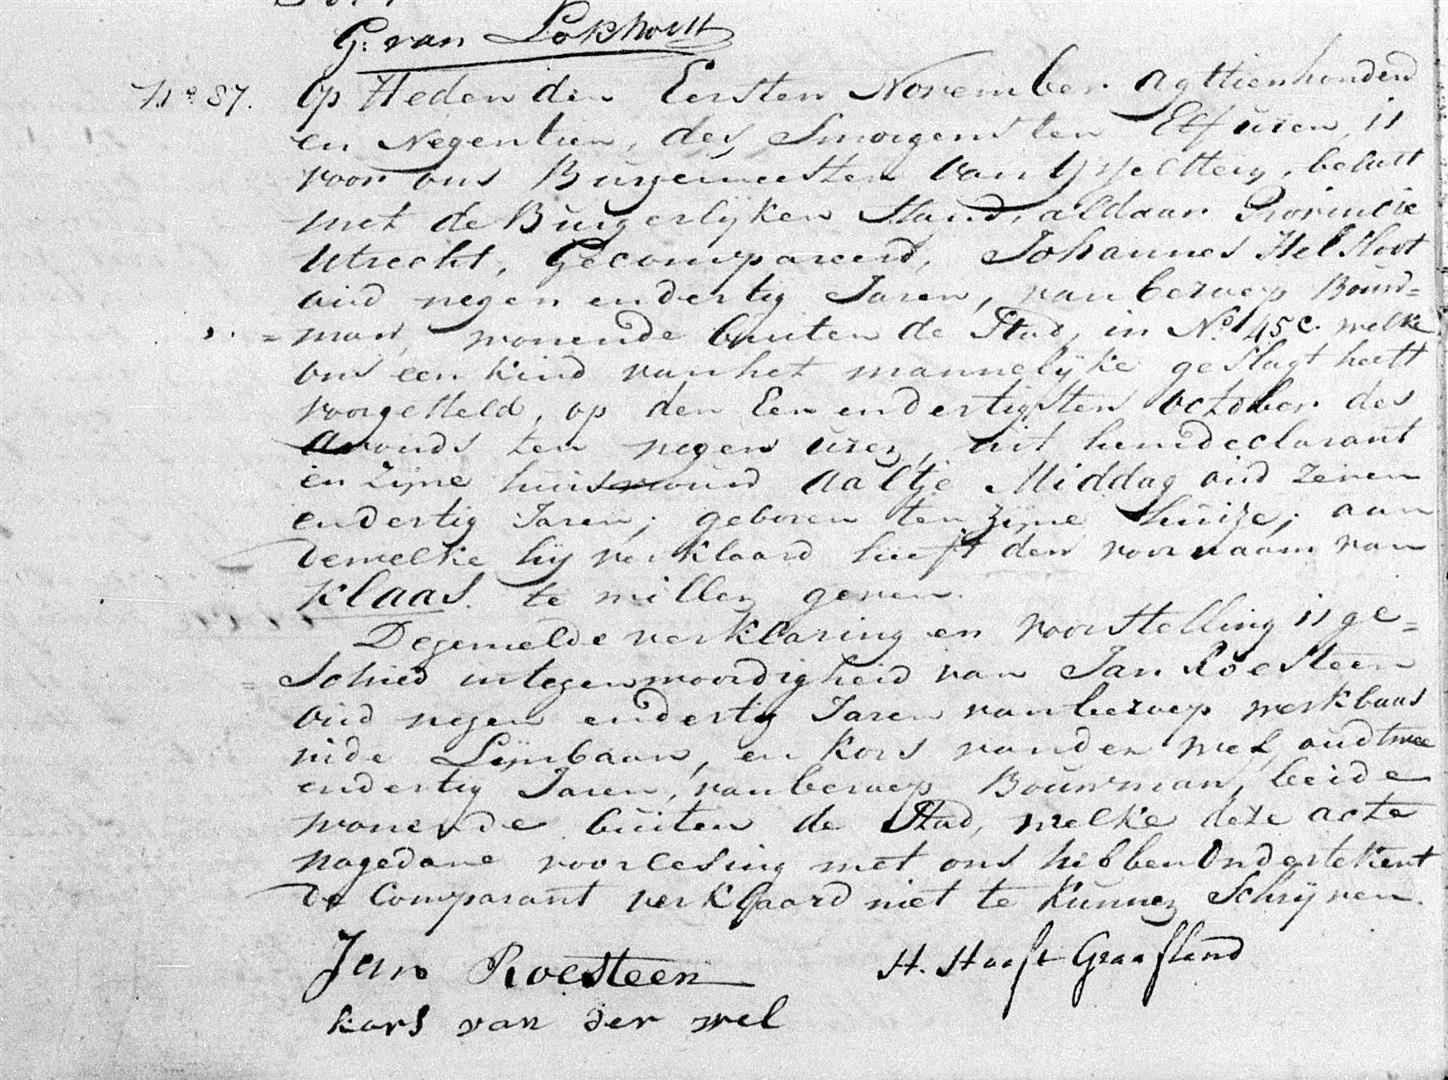 G: van Lokhorst
No 87. Op Heden den Eersten November agttienhonderd
en Negentien, des Smorgens ten Elf uren, is
voor ons Burgemeester van Ysselsteyn, belast
met de Burgerlyken Stand, aldaar Provincie
Utrecht, Gecompareerd, Johannes Hel Sloot
oud negen en dertig Jaren, van beroep Bouw=
=man, wonende buiten de Stad, in No 45c. welke
ons een kind van het mannelyke geslagt heeft
voorgesteld, op den Een en dertigsten october des
avonds ten negen uren, uit hem declarant
en zyne huisvrouw Aaltje Middag oud zeven
en dertig Jaren; geboren ten zyne huize; aan
dewelke hy verklaard heeft den voornaam van
Klaas. te willen geven.
De gemelde verklaring en voorstelling is ge=
=schied in tegenwoordigheid van Jan Roesteen
oud negen en dertig Jaren van beroep werkbaas
in de Lynbaan, en Kors van der wel, oud twee
en dertig Jaren, van beroep Bouwman, beide
wonende buiten de Stad, welke deze acte
na gedane voorlesing met ons hebben Ondertekent
De Comparant verklaard niet te kunnen Schryven.
Jan Roesteen H. Hooft Graafland
kors van der wel